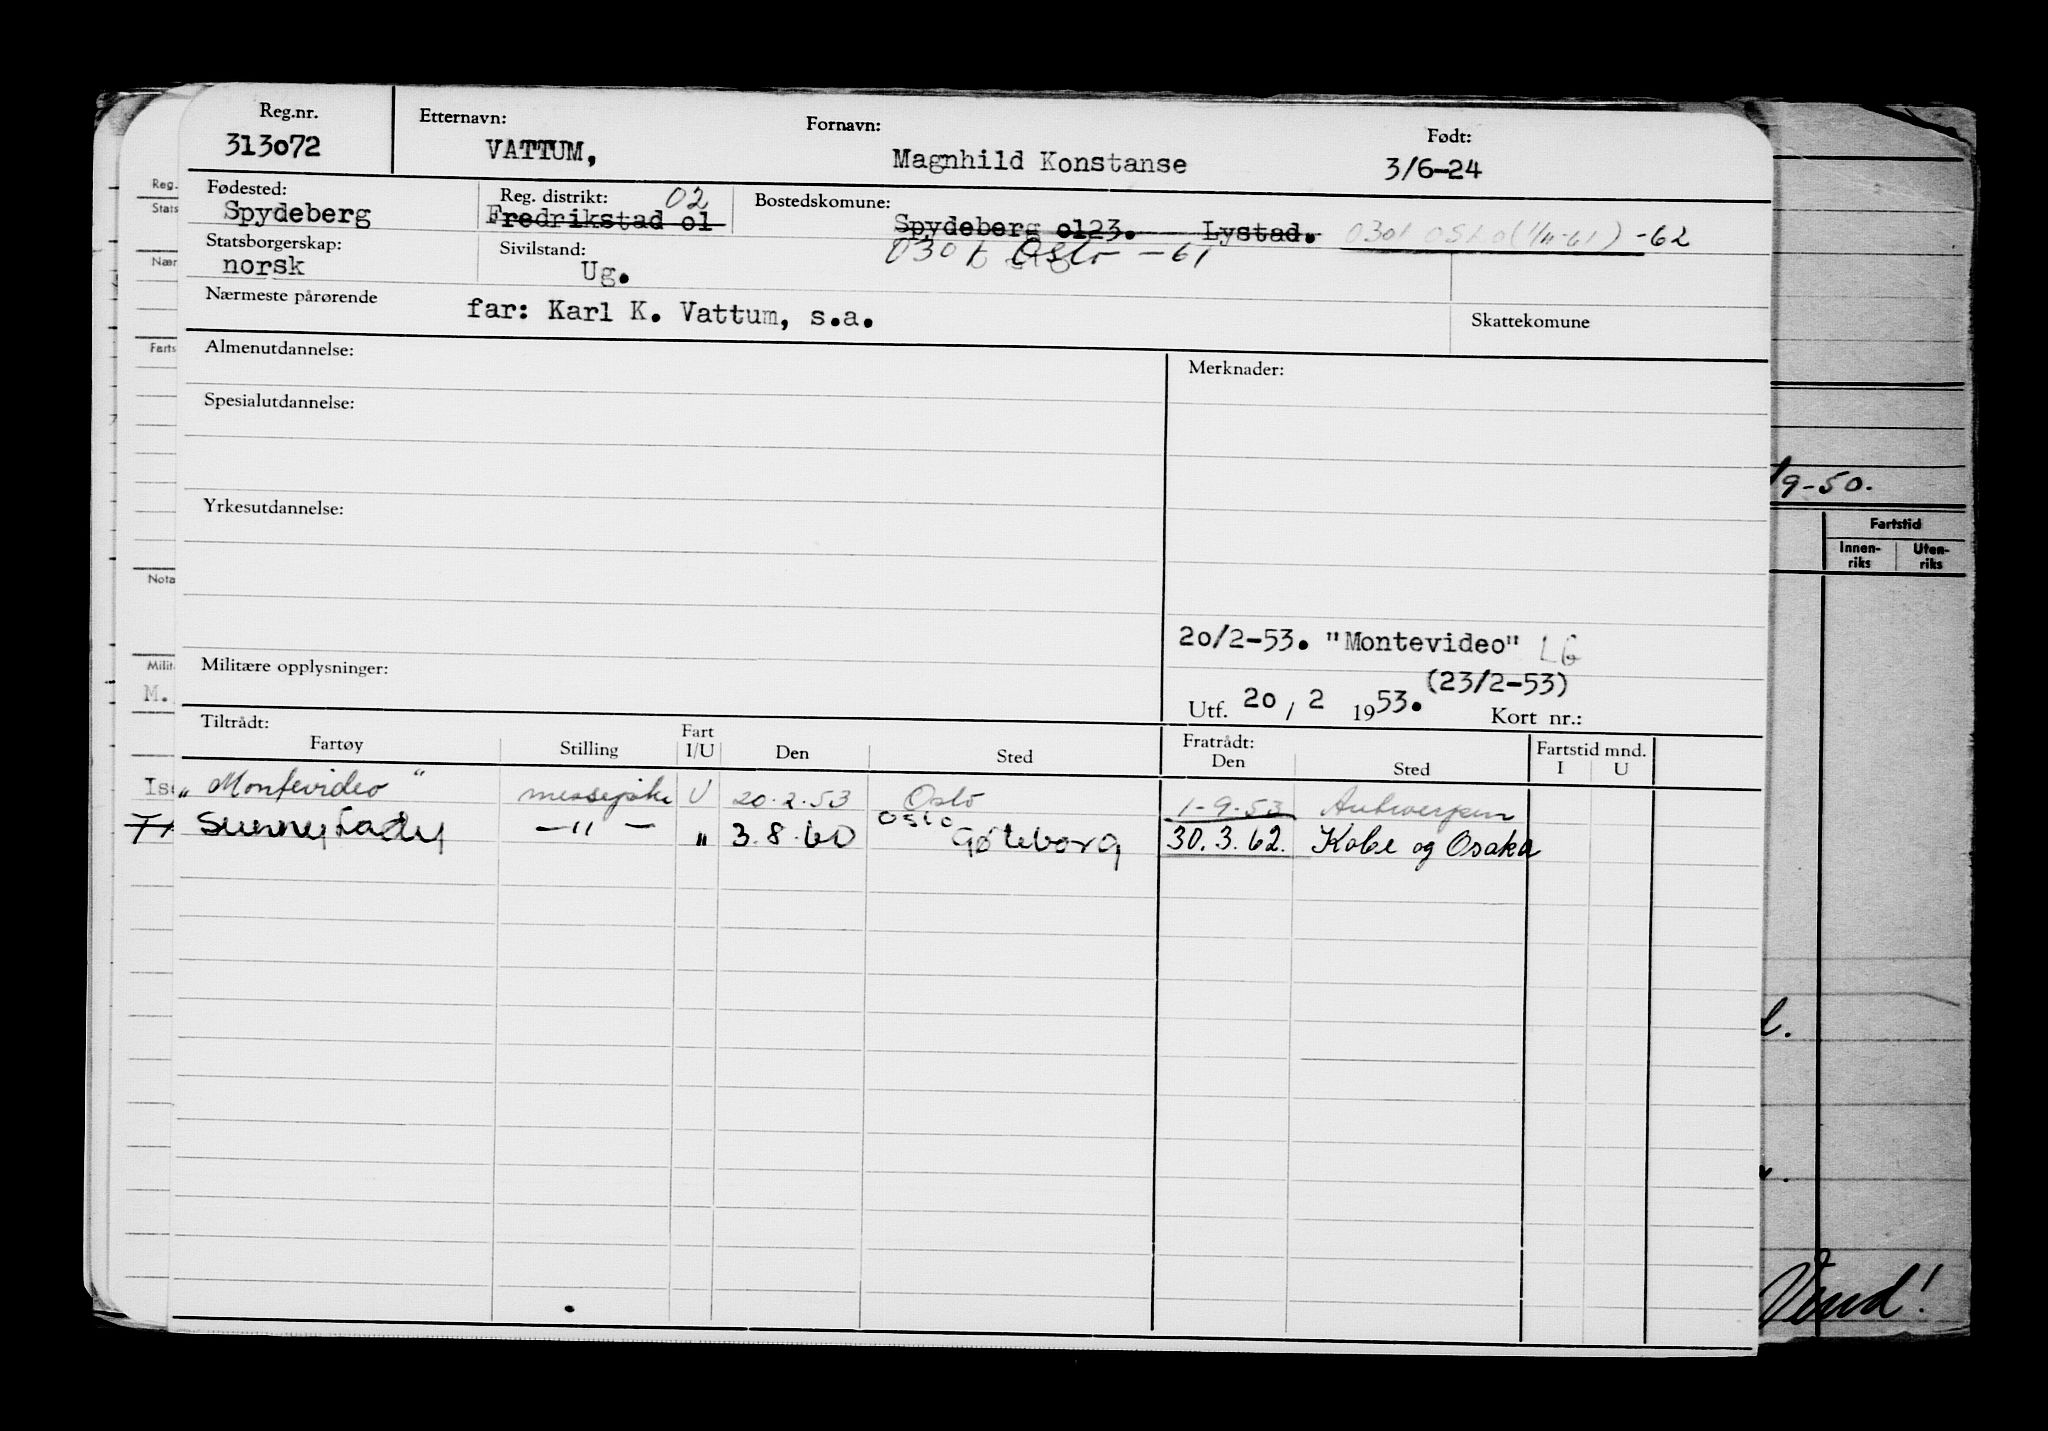 Reg.nr. Etternavn: Fornavn: Født:
313072 VATTUM, Magnhild Konstanse 3/6-24
Fødested: Reg. distrikt: 02 Bostedskomune:
Spydeberg Fredrikstad 01 Spydeberg 0123. Lystad. 0301 OSLO (1/11-61) -62
Statsborgerskap: Sivilstand: 0301 Oslo -61
norsk Ug.
Nærmeste pårørende far: Karl K. Vattum, s.a. Skattekomune
Almenutdannelse: Merknader:
Spesialutdannelse:
Yrkesutdannelse:
20/2-53. "Montevideo" LG
Militære opplysninger: (23/2-53)
Utf. 20 / 2 1953. Kort nr.:
Tiltrådt: Fratrådt:
Fartøy Stilling Fart I/U Den Sted Den Sted Fartstid mnd. I U
"Montevideo" messepike U 20.2.53 Oslo 1-9-53 Antwerpen
Sunny Lady -"- " 3.8.60 Oslo Gøteborg 30.3.62. Kobe og Osaka
Reg.
Stats
Nær
Farts
Nota
Milit
M.
Ise
/9-50.
Fartstid
Innen-riks Uten-riks
Vend!